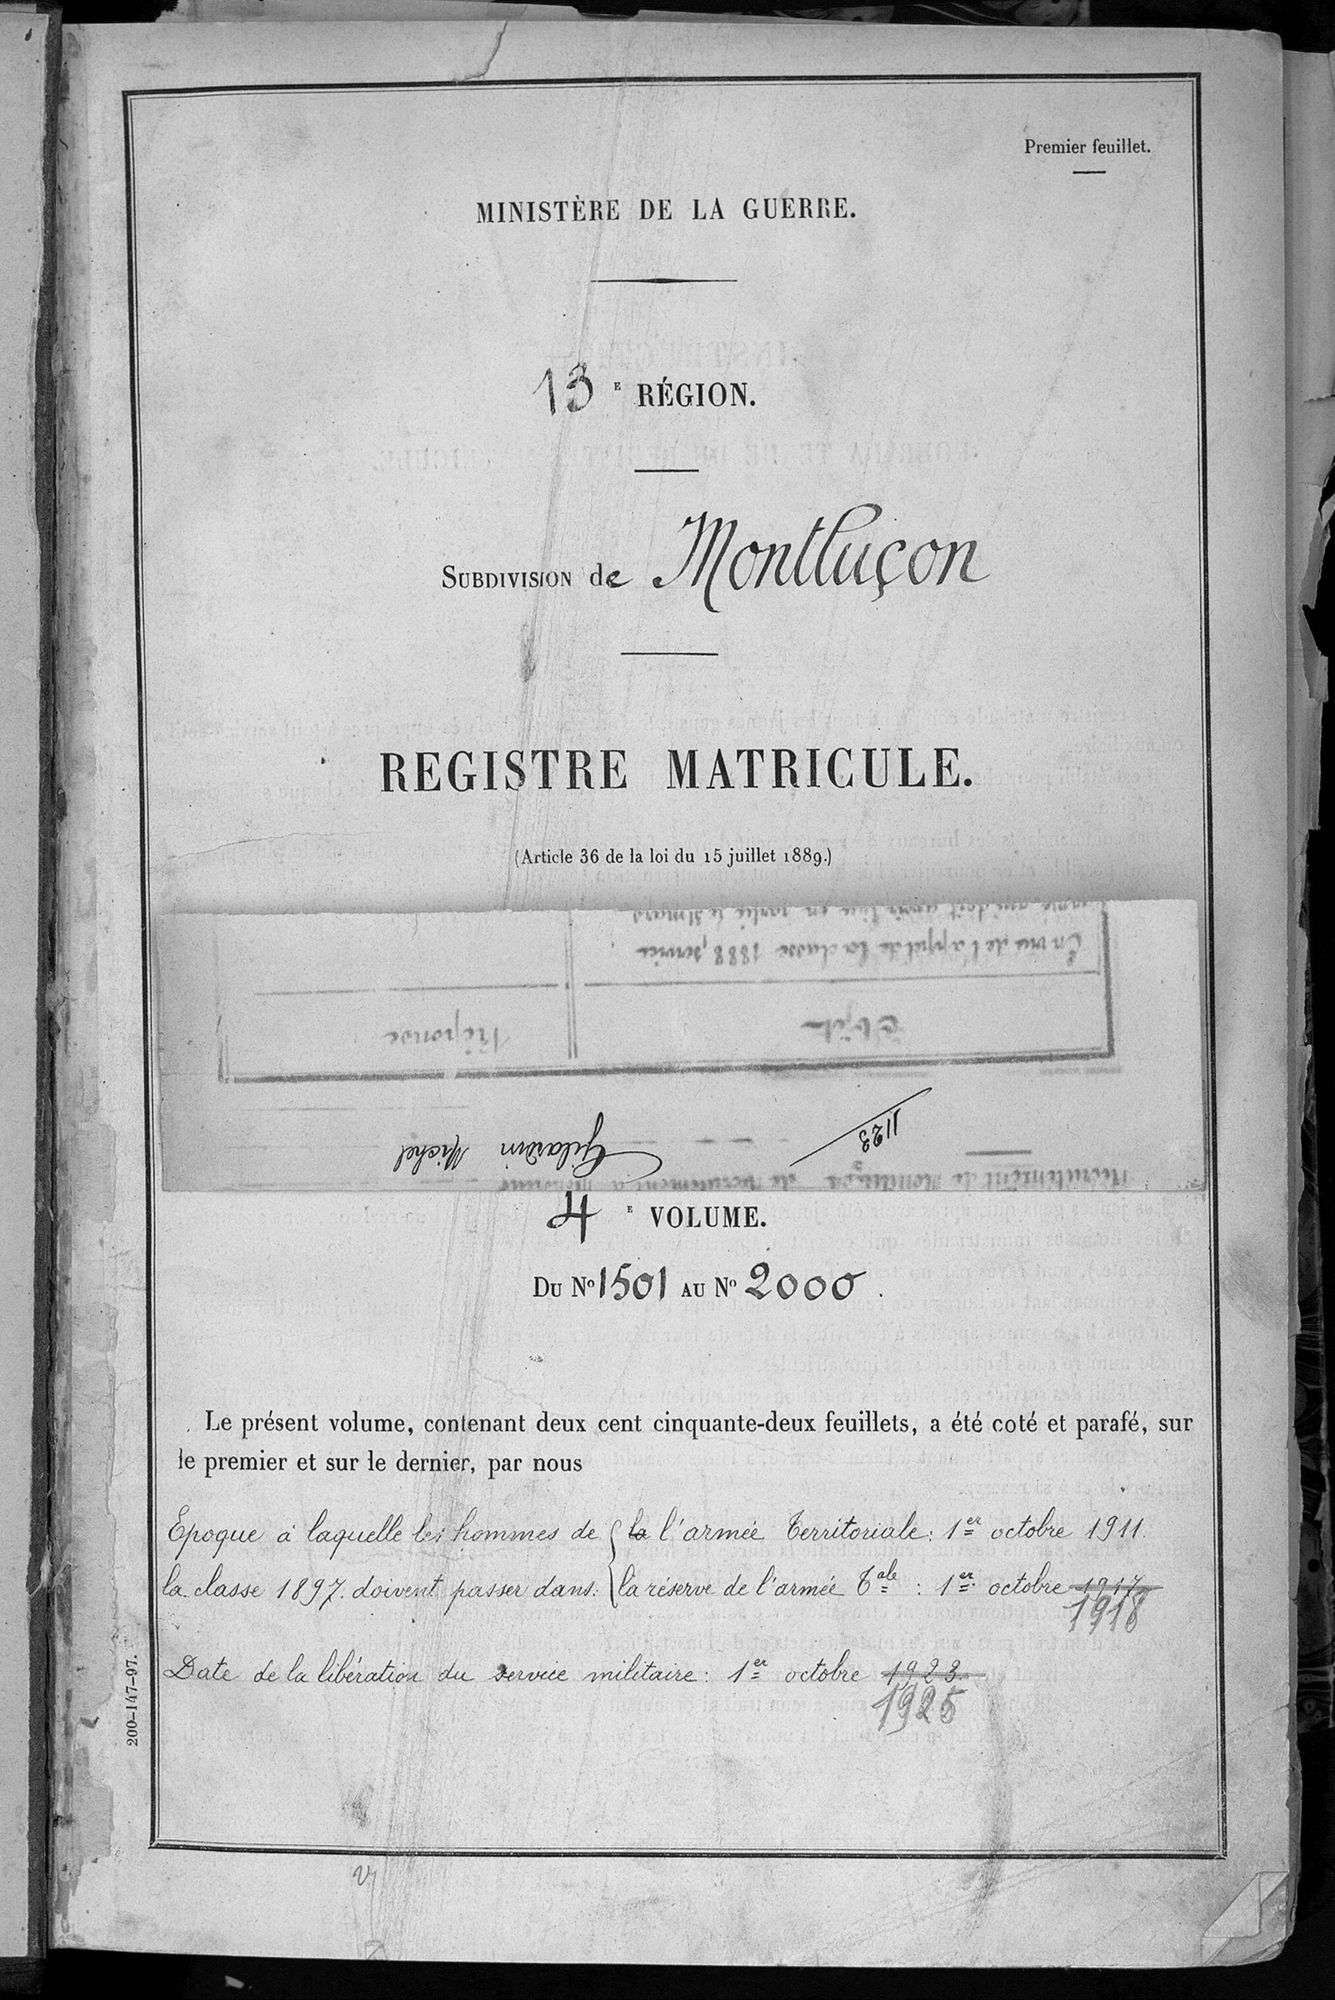 Premier feuillet.
MINISTÈRE DE LA GUERRE.
13 E RÉGION.
SUBDIVISION de Montluçon
REGISTRE MATRICULE.
(Article 36 de la loi du 15 juillet 1889.)
En vue de l'appel de la classe 1888, service
Objet
Réponse
1123
Gilardin Michel
Recrutement de Montluçon
4 E VOLUME.
DU No 1501 AU No 2000.
Le présent volume, contenant deux cent cinquante-deux feuillets, a été coté et parafé, sur
le premier et sur le dernier, par nous
Epoque à laquelle les hommes de { la l'armée Territoriale : 1er octobre 1911.
la classe 1897 doivent passer dans : { la réserve de l'armée Tale : 1er octobre 1917
1918
Date de la libération du service militaire : 1er octobre 1923
1925
200-147-97.